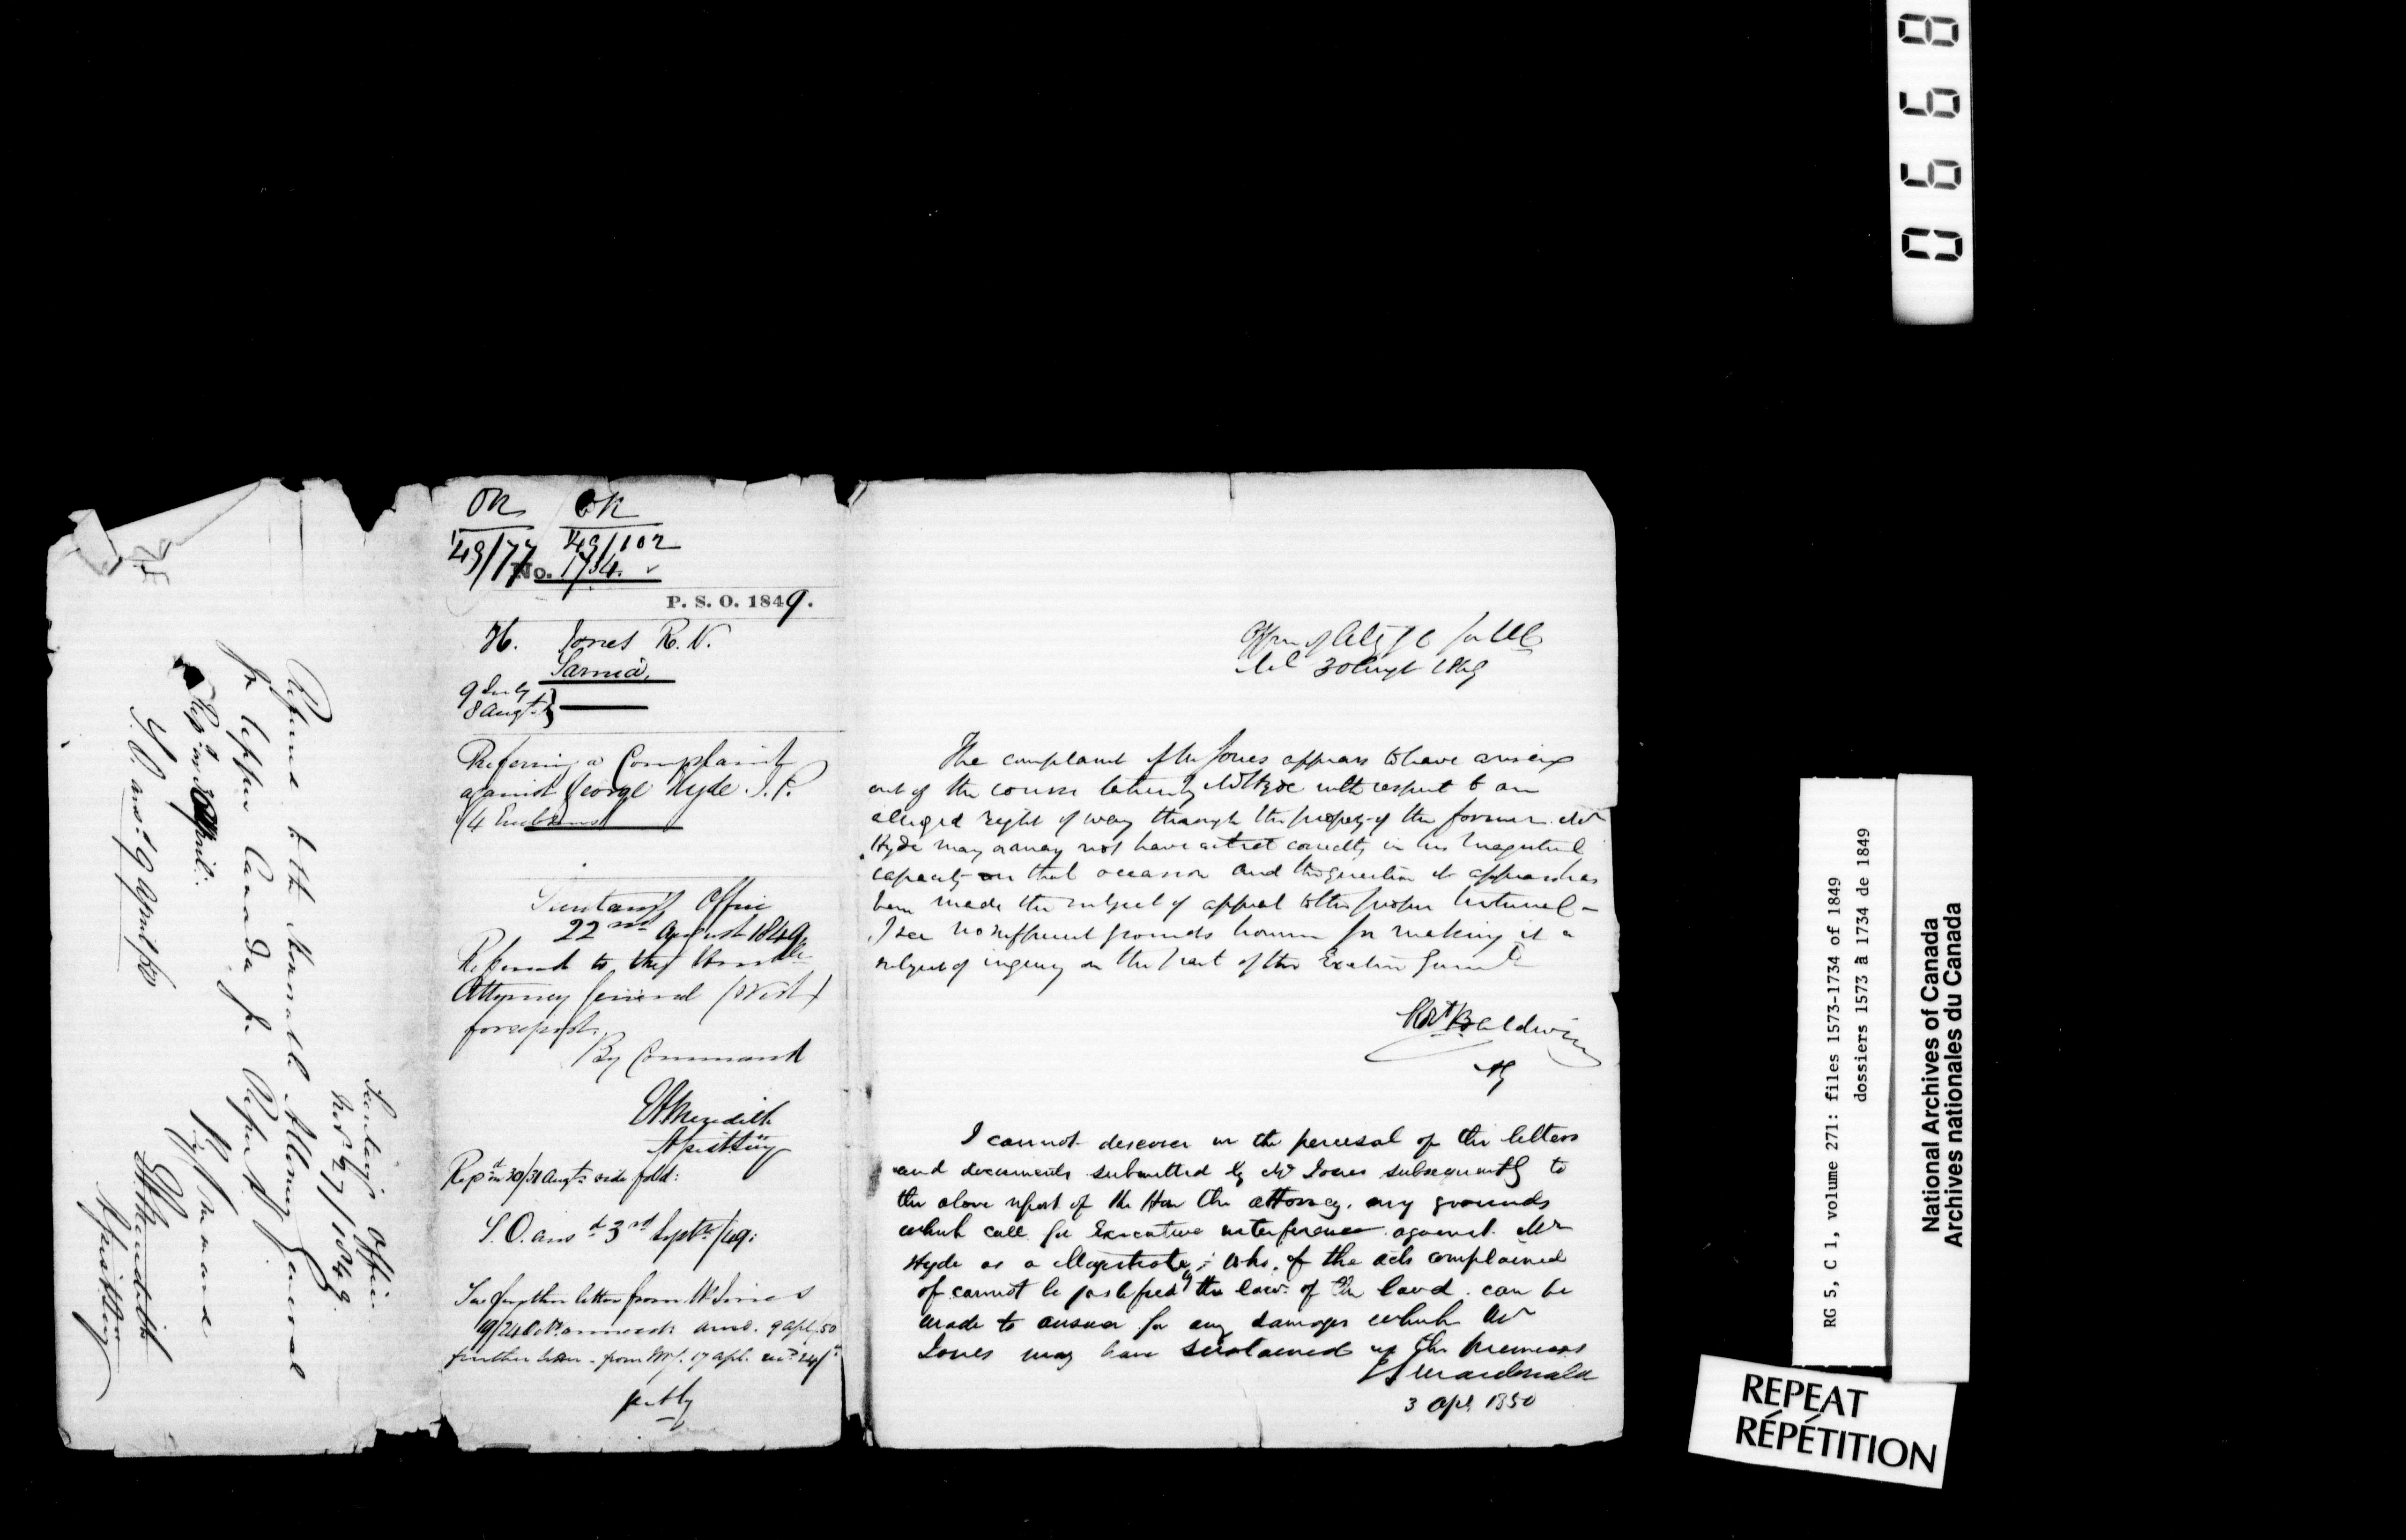 Secretary's Office
Nov 27/1849.
Referred to the Honorable Attorney General
for Upper Canada for Report
By Command
E A Meredith
Asst Secy
Repd on 3 April.
S. O. ansd 9 April/50
49/77
49/102
No. 1734.
P. S. O. 1849.
H. Jones R. N.
Sarnia,
9 July
8 Augt.
Referring a Complaint
against George Hyde J. P.
4 Enclosures
Secretary's Office
22nd August 1849
Referred to the Honble
Attorney General (West)
for report.
By Command
E A Meredith
Asst Secy
Repd on 30/31 Augt: vide fold:
S. O. ansd 3rd Septr/49:
See further letter from Mr Jones
19/24 Octr annexed: ansd. 9 Apl/50
further letter from Mr J. 17 Apl.
Office of Atty G for UC
30 Augt 1849
The complaint of Mr Jones appears to have arisen
out of the course taken by Mr Hyde with respect to an
alleged right of way through the property of the former. Mr
Hyde may or may not have acted correctly in his Magisterial
capacity on that occasion and the question it appears has
been made the subject of appeal to the proper tribunal –
I see no sufficient grounds however for making it a
subject of inquiry on the part of the Executive Governmt
Robt Baldwin
AG
I cannot discover in the perusal of the letters
and documents submitted by Mr Jones subsequently to
the above report of the Hon the Attorney, any grounds
which call for Executive interference against Mr
Hyde as a Magistrate; who, if the acts complained
of cannot be justified by the law of the land can be
made to answer for any damages which Mr
Jones may have sustained in the premises
J S Macdonald
3 Apl 1850
0668
RG 5, C 1, volume 271: files 1573-1734 of 1849
dossiers 1573 à 1734 de 1849
National Archives of Canada
Archives nationales du Canada
REPEAT
RÉPÉTITION